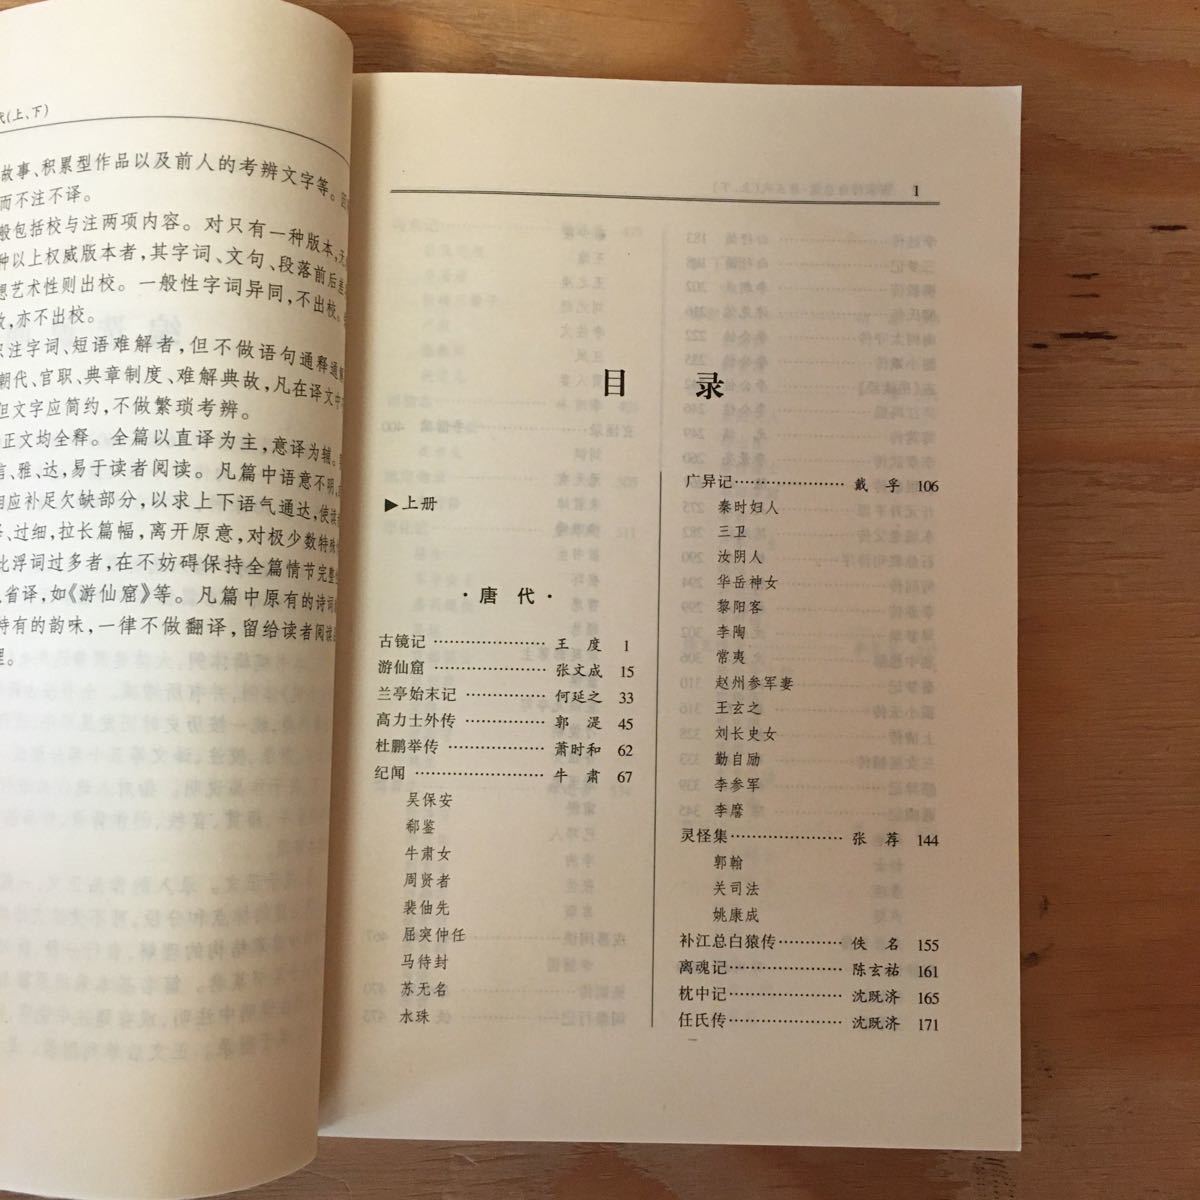 代(上、下)
故事、积累型作品以及前人的考辨文字等。
而不注不译。
般包括校与注两项内容。对只有一种版本,无
种以上权威版本者,其字词、文句、段落前后差
想艺术性则出校。一般性字词异同,不出校。
故,亦不出校。
只注字词、短语难解者,但不做语句通释通解
朝代、官职、典章制度、难解典故,凡在译文中
但文字应简约,不做繁琐考辨。
正文均全释。全篇以直译为主,意译为辅。
信、雅、达,易于读者阅读。凡篇中语意不明,
相应补足欠缺部分,以求上下语气通达,使读
、过细,拉长篇幅,离开原意,对极少数特殊
比浮词过多者,在不妨碍保持全篇情节完整
省译,如《游仙窟》等。凡篇中原有的诗词
特有的韵味,一律不做翻译,留给读者阅读
理。
1
目 录
▶上册
·唐 代·
古镜记 …… 王 度 1
游仙窟 …… 张文成 15
兰亭始末记 …… 何延之 33
高力士外传 …… 郭 湜 45
杜鹏举传 …… 萧时和 62
纪闻 …… 牛 肃 67
吴保安
郗鉴
牛肃女
周贤者
裴伷先
屈突仲任
马待封
苏无名
水珠
广异记 …… 戴 孚 106
秦时妇人
三卫
汝阴人
华岳神女
黎阳客
李陶
常夷
赵州参军妻
王玄之
刘长史女
勤自励
李参军
李麿
灵怪集 …… 张 荐 144
郭翰
关司法
姚康成
补江总白猿传 …… 佚 名 155
离魂记 …… 陈玄祐 161
枕中记 …… 沈既济 165
任氏传 …… 沈既济 171